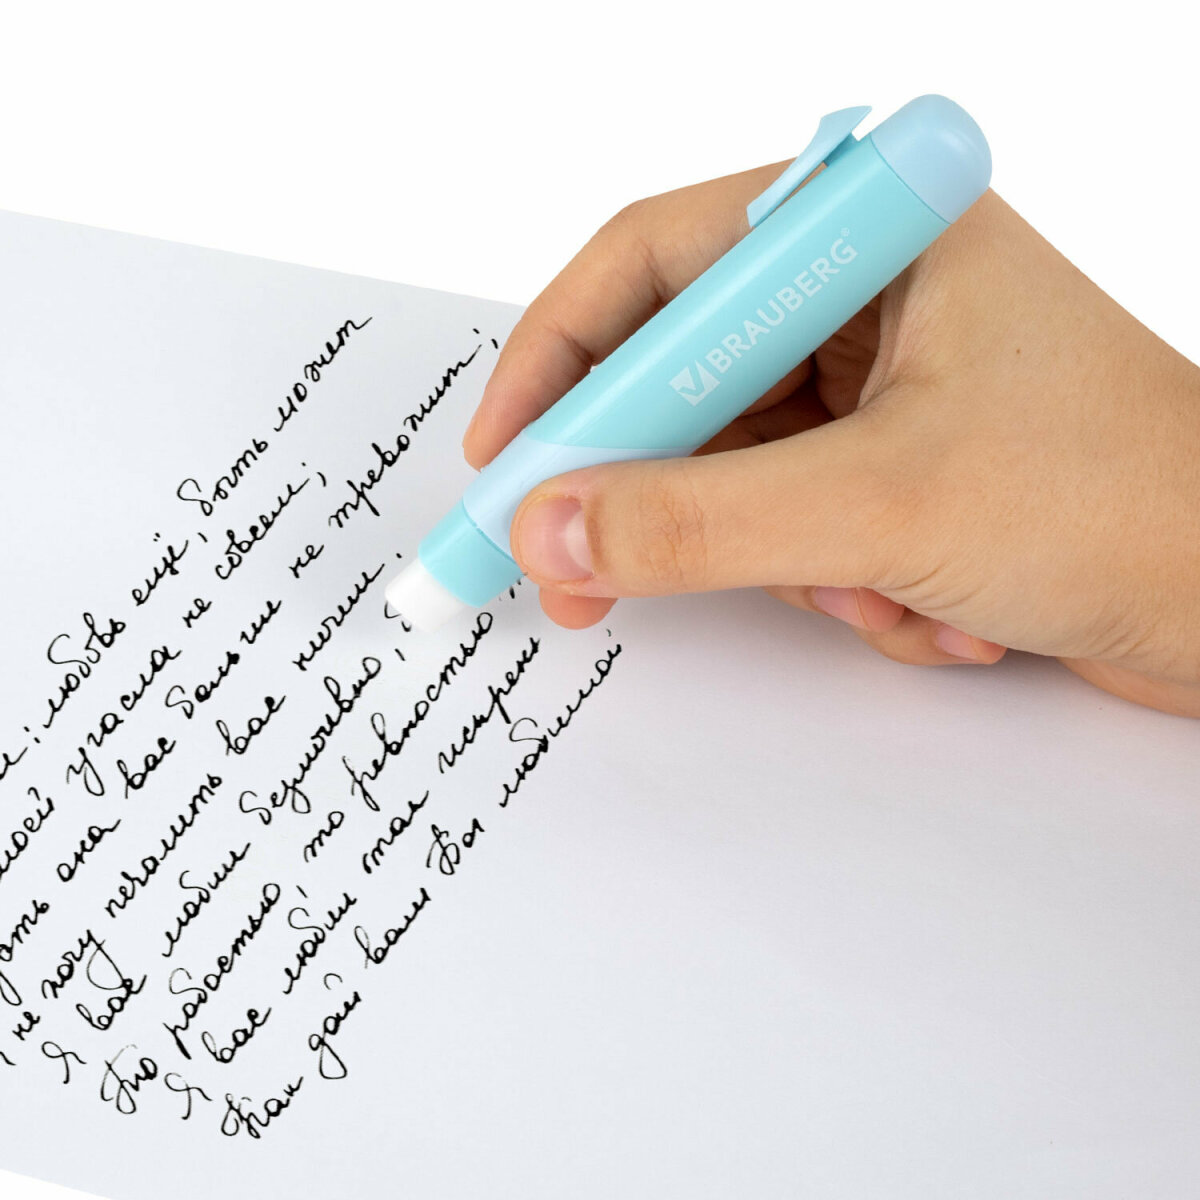 : любовь ещё, быть может
моей угасла не совсем;
она вас больше не тревожит;
не хочу печалить вас ничем.
Я вас любил безмолвно,
То радостью, то ревностью
Я вас любил так искрен
Как дай вам Бог любимой
BRAUBERG®